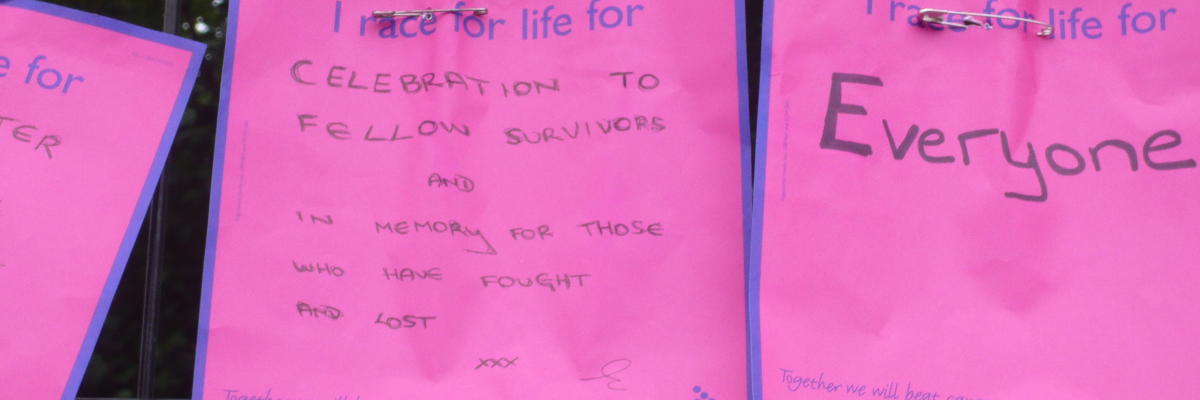 e for
TER
I race for life for
CELEBRATION TO
FELLOW SURVIVORS
AND
IN MEMORY FOR THOSE
WHO HAVE FOUGHT
AND LOST
xxx
Together we will
I race for life for
Everyone
Together we will beat